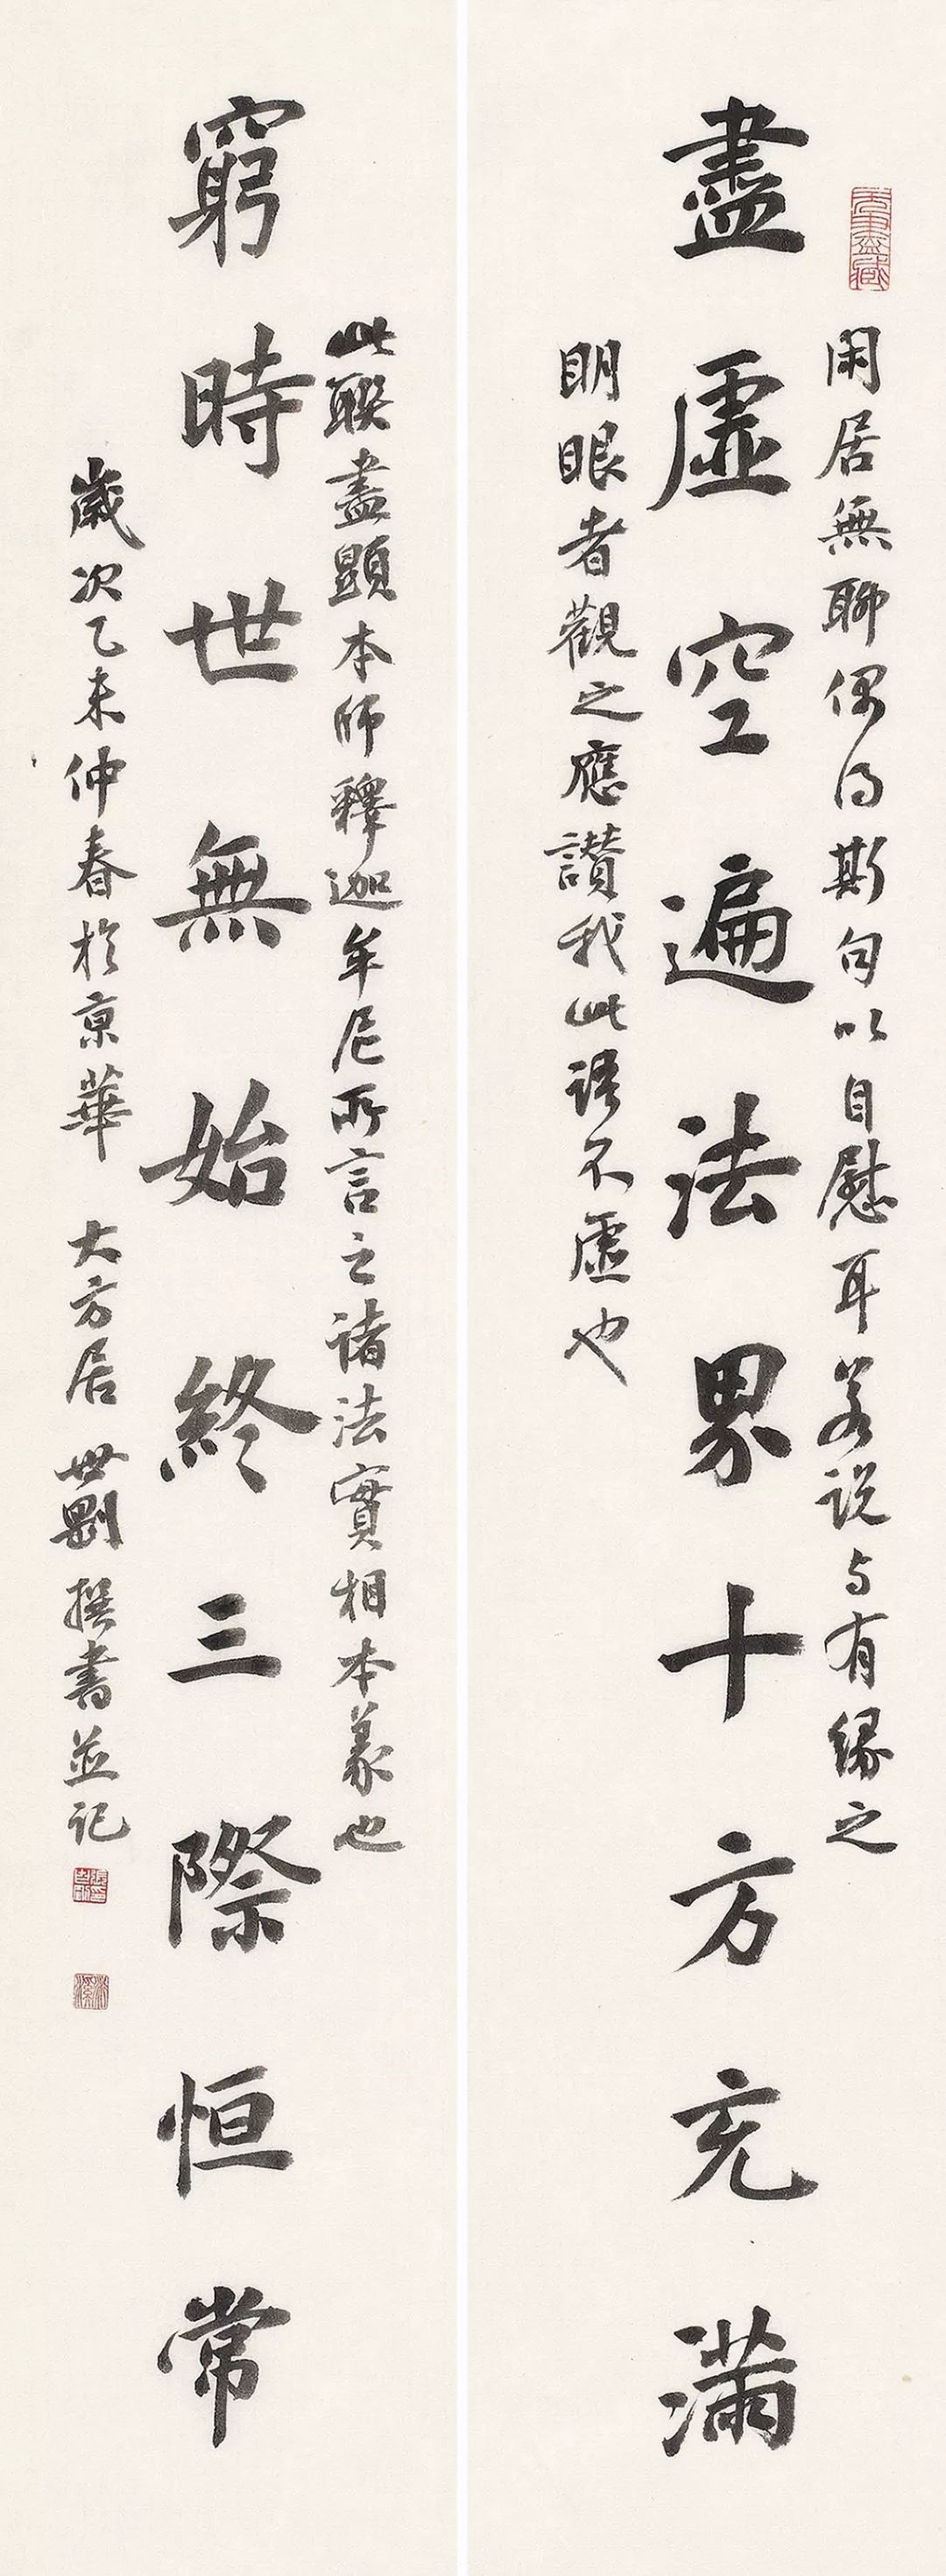 盡虛空遍法界十方充滿
閑居無聊偶得斯句以自慰耳若說与有緣之
明眼者觀之應讃我此語不虛也
窮時世無始終三際恒常
此聯盡顯本師釋迦牟尼所言之諸法實相本義也
歲次乙未仲春於京華 大方居 世剛 撰書並記